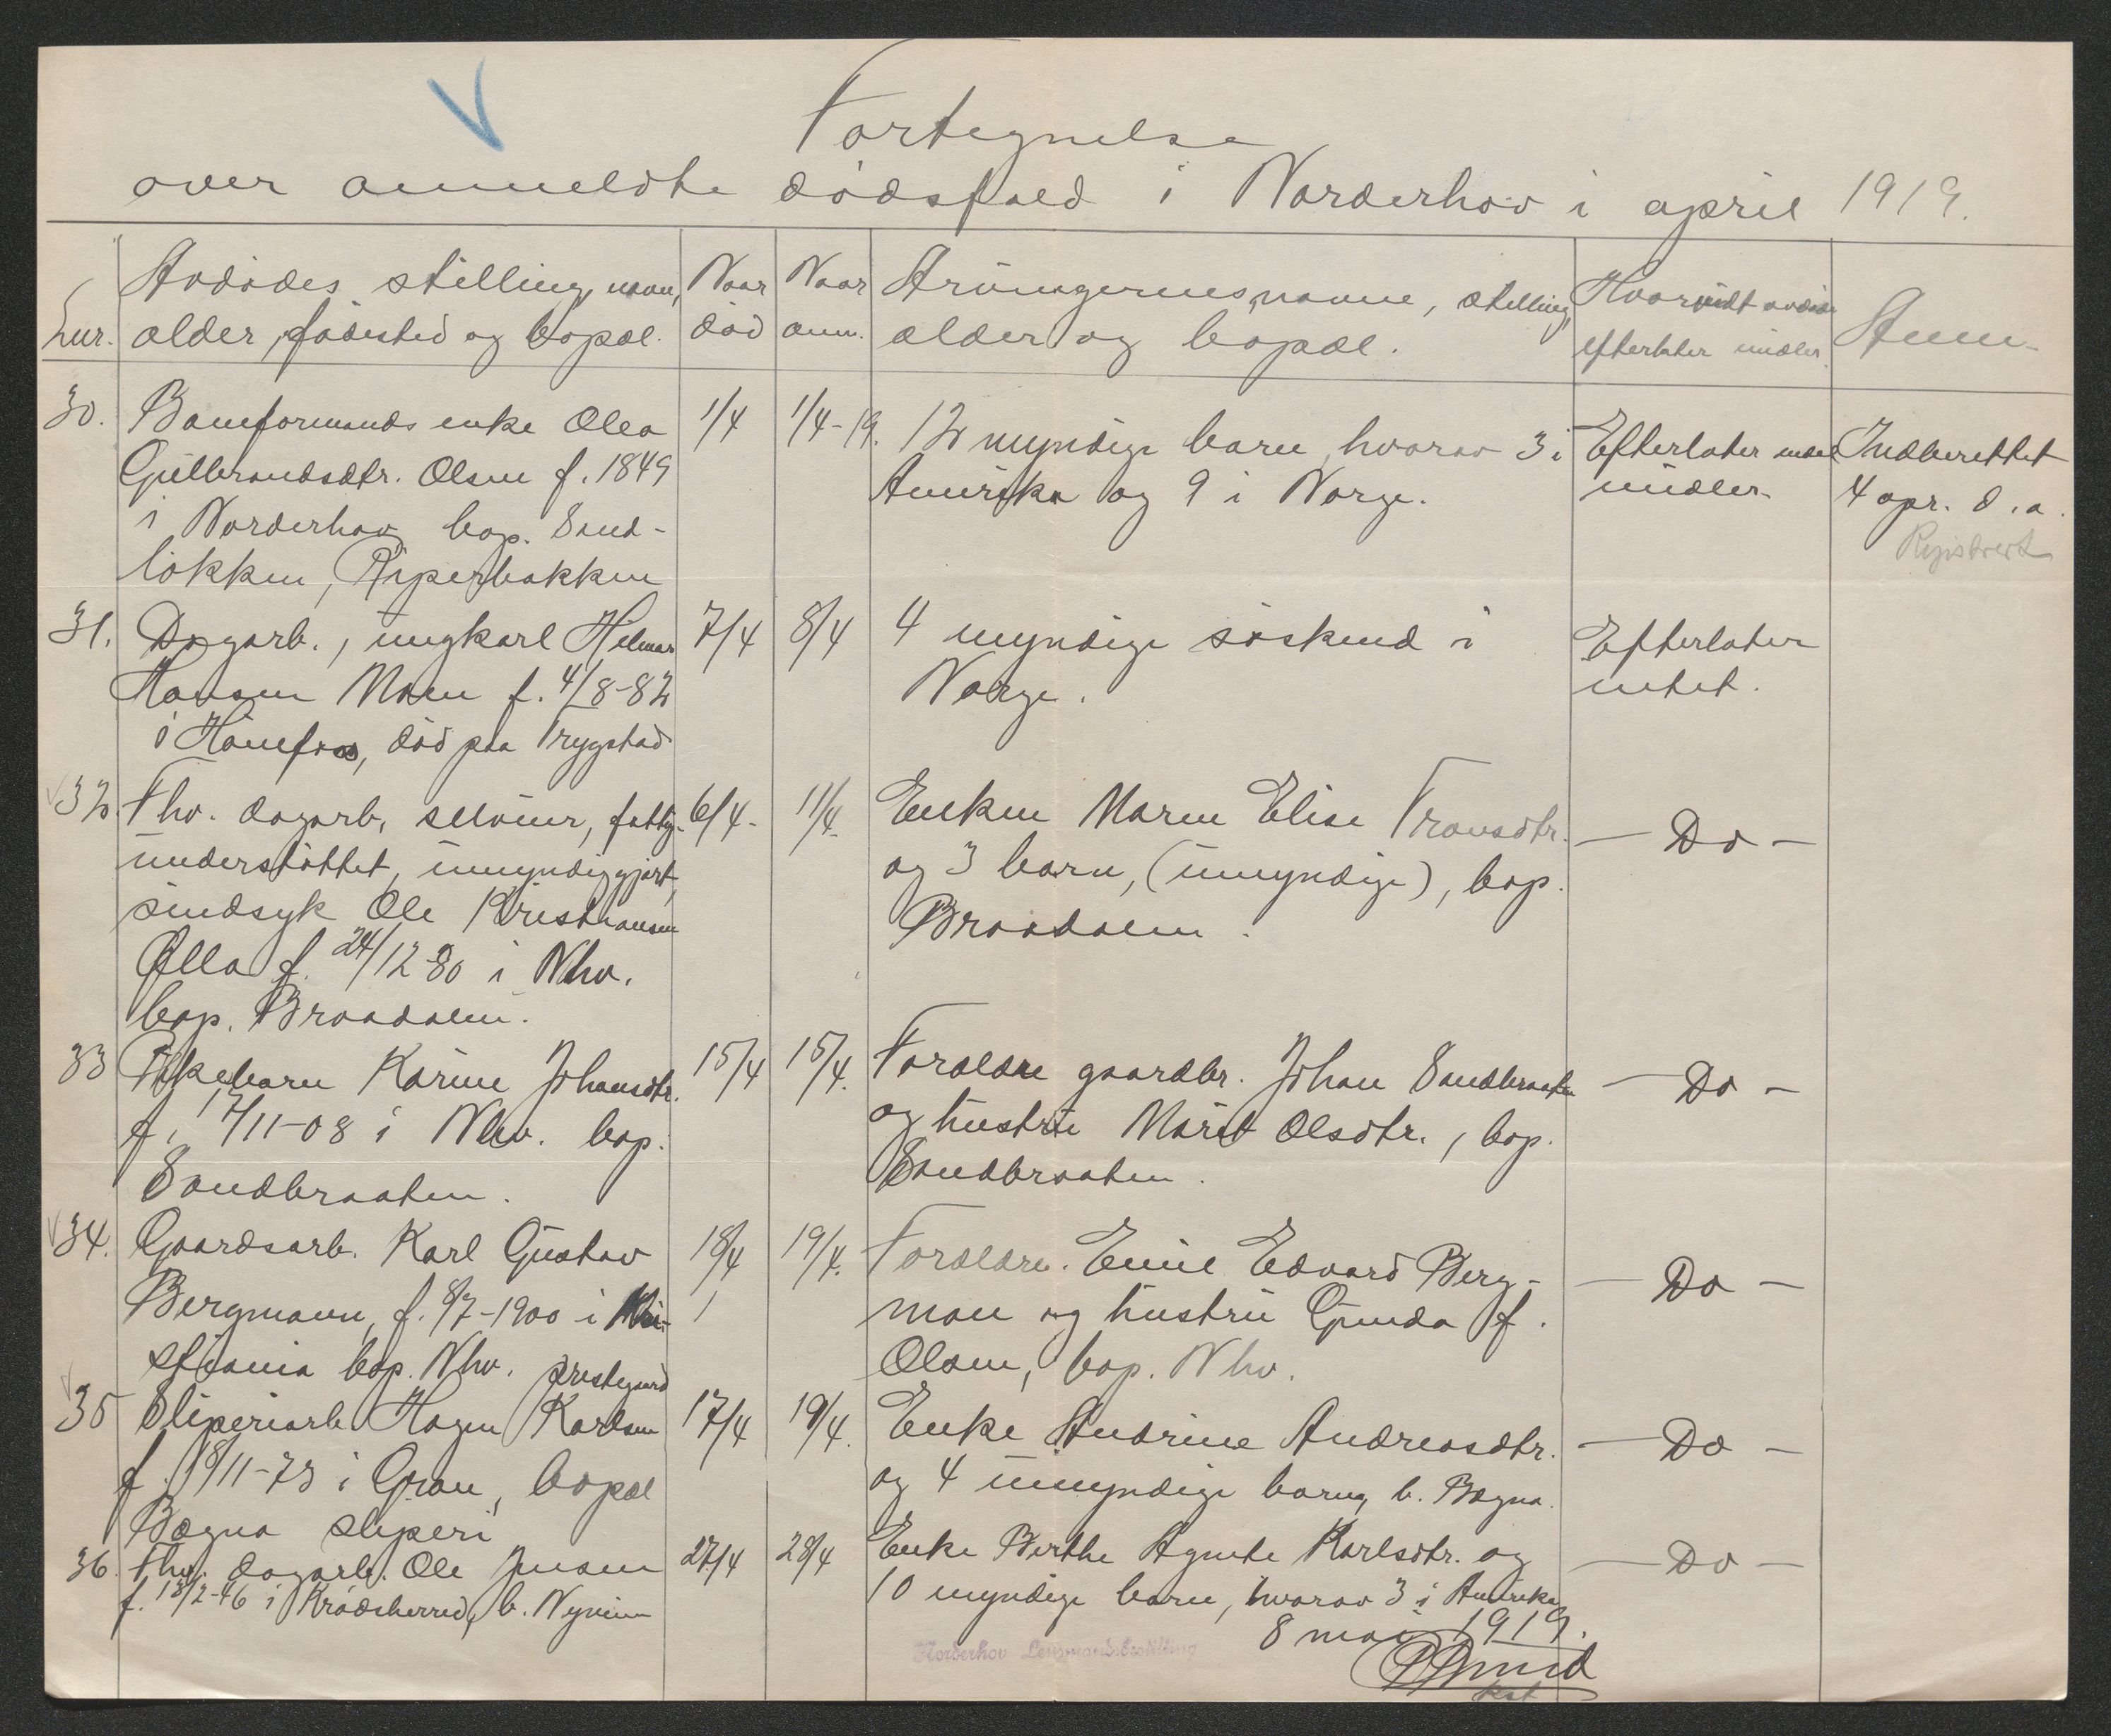 Fortegnelse
over anmeldte dödsfald i Norderhov i april 1919.
Lnr.
Avdödes stilling, navn, alder, födested og bopæl.
Naar död
Naar anm.
Arvingernes navne, stilling, alder og bopæl.
Hvorvidt avdöde efterlater midler
Anm.
30.
Baneformands enke Olea
Gulbrandsdtr. Olsen f. 1849
i Norderhov bop. Sand-
løkken, Piperbakken
1/4
1/4-19.
12 myndige barn, hvorav 3 i
Amerika og 9 i Norge.
Efterlater
midler
Indberettet
4 apr. d.a.
Registrert
31.
Dagarb., ungkarl Hilmar
Hansen Moen f. 4/8-82
i Hönefos, död paa Trygstad
7/4
8/4
4 myndige söskend i
Norge.
Efterlater
intet.
32.
Fhv. dagarb., selveier, fattig-
understöttet, umyndiggjort,
sindsyk Ole Kristiansen
Ølla f. 24/12-80 i Nhv.
bop. Braadalen.
6/4-
11/4-
Enken Maren Elise Fransdtr.
og 3 barn, (umyndige), bop.
Braadalen.
- Do -
33
Pikebarn Karine Johansdtr.
f. 17/11-08 i Nhv. bop.
Sandbraaten.
15/4
15/4.
Foreldre gaardbr. Johan Sandbraaten
og hustru Marit Olsdtr., bop.
Sandbraaten.
- Do -
34.
Gaardsarb. Karl Gustav
Bergmann, f. 8/7-1900 i Kri-
stiania bop. Nhv. prestegaard
18/4
19/4.
Foreldre. Emil Edvard Berg-
man og hustru Gunda f.
Olsen, bop. Nhv.
- Do -
35
Sliperiarb. Hagen Karlsen
f. 18/11-73 i Gran, bopæl
Bægna sliperi
17/4
19/4.
Enke Andrine Andreasdtr.
og 4 umyndige barn, b. Bægna.
- Do -
36.
Fhv. dagarb. Ole Jensen
f. 18/2-46 i Krödsherred, b. Nymoen
27/4
28/4
Enke Berthe Agnete Karlsdtr. og
10 myndige barn, hvorav 3 i Amerika
- Do -
8 mai 1919.
Norderhov Lensmandsbestilling